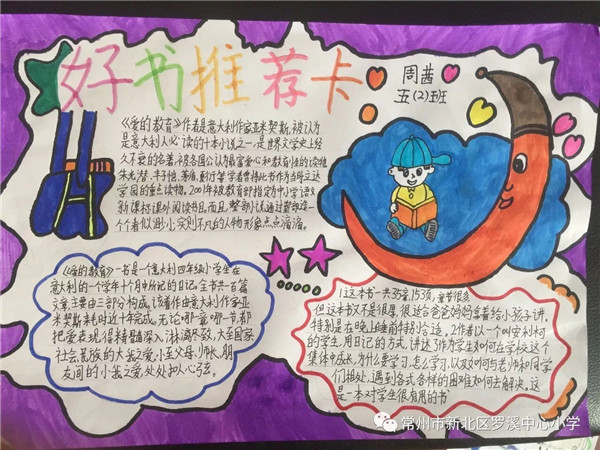 好书推荐卡
周茜
五(2)班
《爱的教育》作者是意大利作家亚米契斯,被认为
是意大利人必读的十本小说之一,是世界文学史上经
久不衰的名著,被各国公认为最富爱心和教育性的读物
朱光潜、丰子恺、茅盾、夏丏尊等学者曾将此书作为当时立达
学园的重点读物。2001年被教育部指定为中小学语文
新课标课外阅读书目。而且,整部小说通过塑造一
个看似渺小,实则不凡的人物形象点点滴滴。
《爱的教育》一书是一个意大利四年级小学生在
意大利的一个学年十个月中所记的日记。全书共一百篇
文章,主要由三部分构成,该著作由意大利作家亚
米契斯耗时近十年完成。无论哪一章,哪一节,都
把爱表现得精髓深入、淋漓尽致,大至国家
社会、民族的大我之爱,小至父母、师长、朋
友间的小我之爱,处处扣人心弦。
1这本书一共 章,15页,章节很多
但这本书又不是很厚,很适合爸爸妈妈拿着给小孩子讲,
特别是在晚上睡前特别合适,2作者以一个叫安利柯
的学生,用日记的方式,讲述了作为学生如何在学校这个
集体中成长,为什么要学习,怎么学习,以及如何与老师和同学
们相处,遇到各式各样的困难如何去解决。这
是一本对学生很有用的书
常州市新北区罗溪中心小学